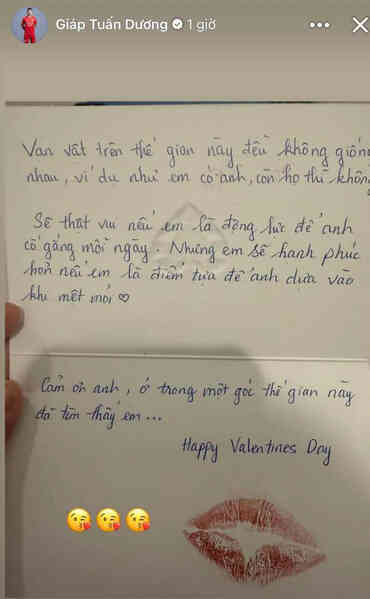 Giáp Tuấn Dương 1 giờ
Vạn vật trên thế gian này đều không giống
nhau, ví dụ như em có anh, còn họ thì không
Sẽ thật vui nếu em là động lực để anh
cố gắng mỗi ngày. Nhưng em sẽ hạnh phúc
hơn nếu em là điểm tựa để anh dựa vào
khi mệt mỏi ♡
Cảm ơn anh, ở trong một góc thế gian này
đã tìm thấy em...
Happy Valentines Day
😘😘😘